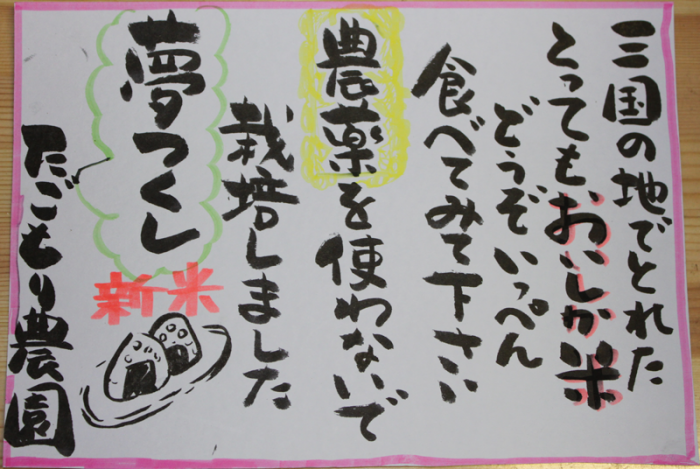 三国の地でとれた
とってもおいしか米
どうぞいっぺん
食べてみて下さい
農薬を使わないで
栽培しました
夢つくし
新米
たごもり農園